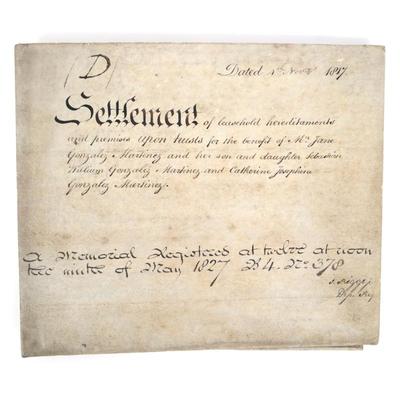 (D)
Dated 4th Novr 1817.
Settlement of leasehold hereditaments
and premises upon trusts for the benefit of Mrs Jane
Gonzalez Martinez and her son and daughter Sebastian
William Gonzalez Martinez and Catherine Josephine
Gonzalez Martinez.
A Memorial Registered at twelve at noon
the ninth of May 1827 B 4. No 378
Dep. Reg